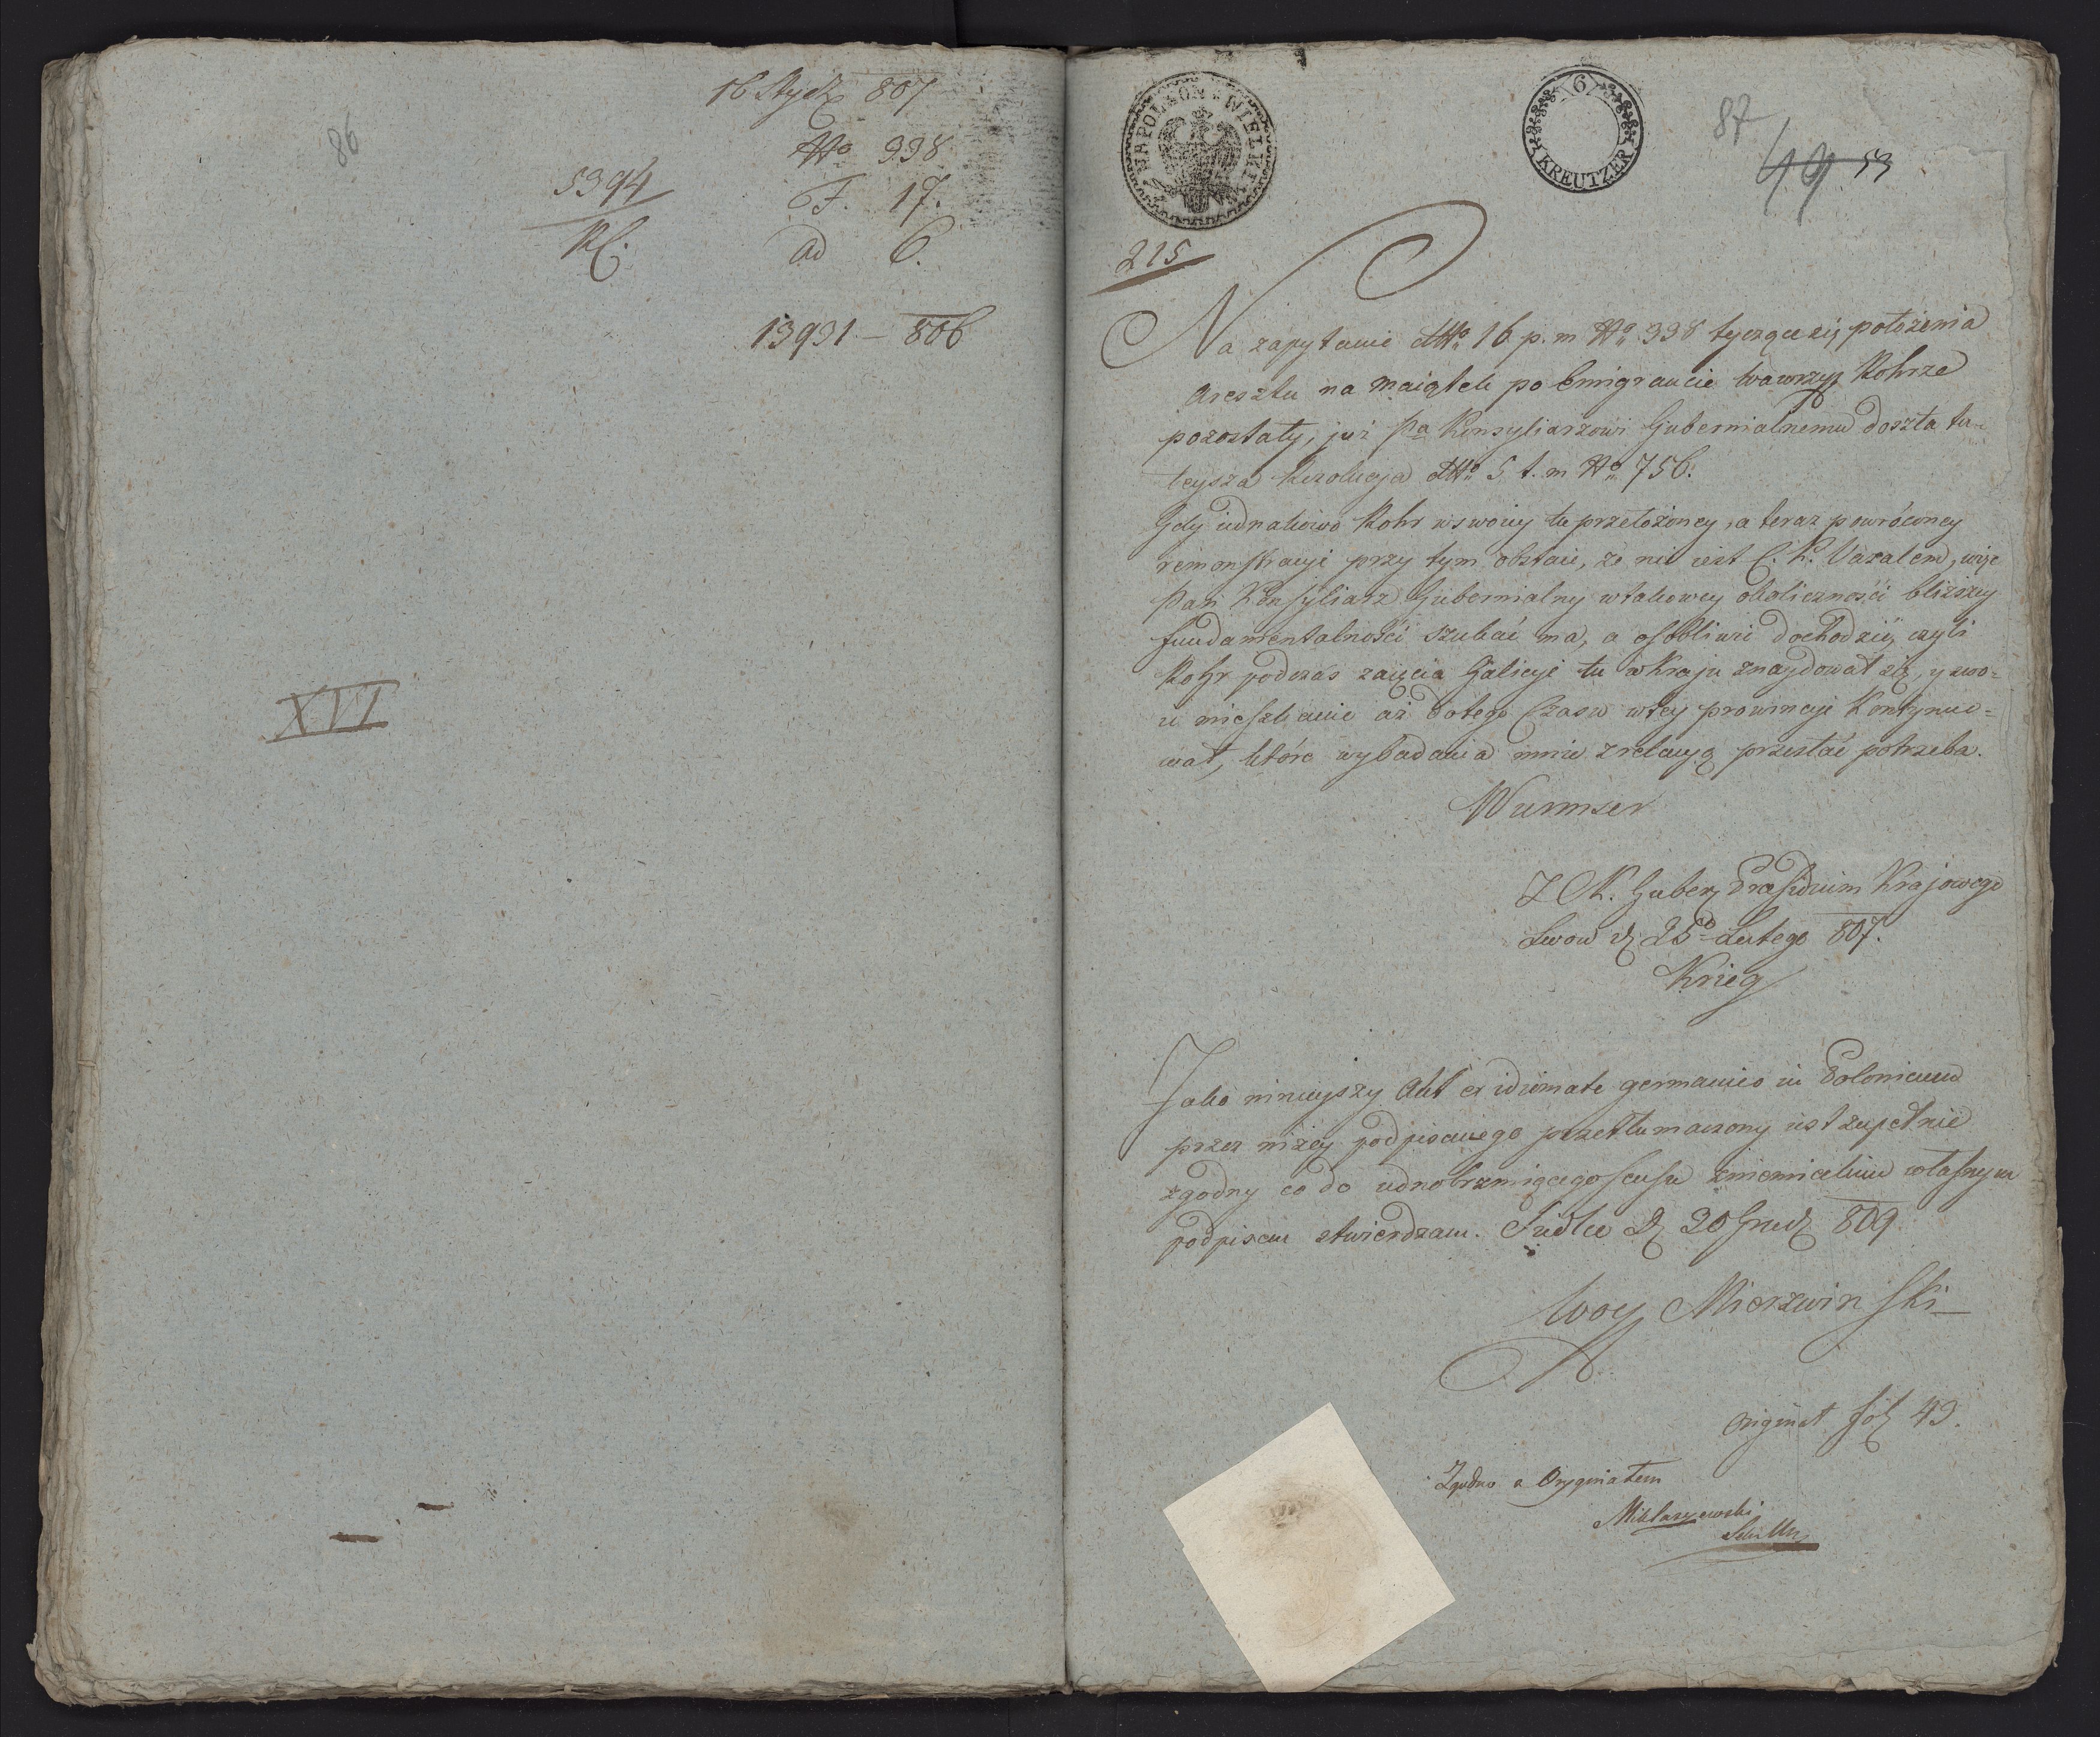 86
16 Stycz 807
No 998
5394
F. 17.
Rl.
ad 6.
13931 – 806
XVI
NAPOLEON WIELKI
6
KREUTZER
87
49 53
215
Na zapytanie dtto 16 p. m No 998 tyczące się położenia
aresztu na maiątek po Emigrancie Wawrzyń Rohrze
pozostały, już Pa Konsyliarzowi Gubernialnemu doszła tu=
teysza Rezolucja dtto 5 t. m No 756.
Gdy iednakowo Rohr w swoiey tu przełożoney, a teraz powróconey
remonstracyi przy tym obstaie, że nie iest C. K. Vazalem, więc
Pan Konsyliarz Gubernialny w takowey okoliczności bliższey
fundamentalności szukać ma, a osobliwie dochodzić, czyli
Rohr podczas zaięcia Galicyi tu w kraju znaydował się, y swo=
ie mieszkanie aż do tego Czasu w tey prowincyi kontynuo=
wał, które wybadania mnie z relacyą przesłać potrzeba.
Wurmser
Z CK. Guber Præsidium Krajowego
Lwow d 25o Lutego 807.
Krieg
Jako ninieyszy Akt ex idiomate germanico in Polonicum
przez niżey podpisanego przetłumaczony iest zupełnie
zgodny co do iednobrzmiącego sensu z niemieckim własnym
podpisem stwierdzam. Siedlce d 20 Grud 809
Woy Mierzwinski
Originał fol 49.
Zgodno z Oryginałem
Miklaszewski